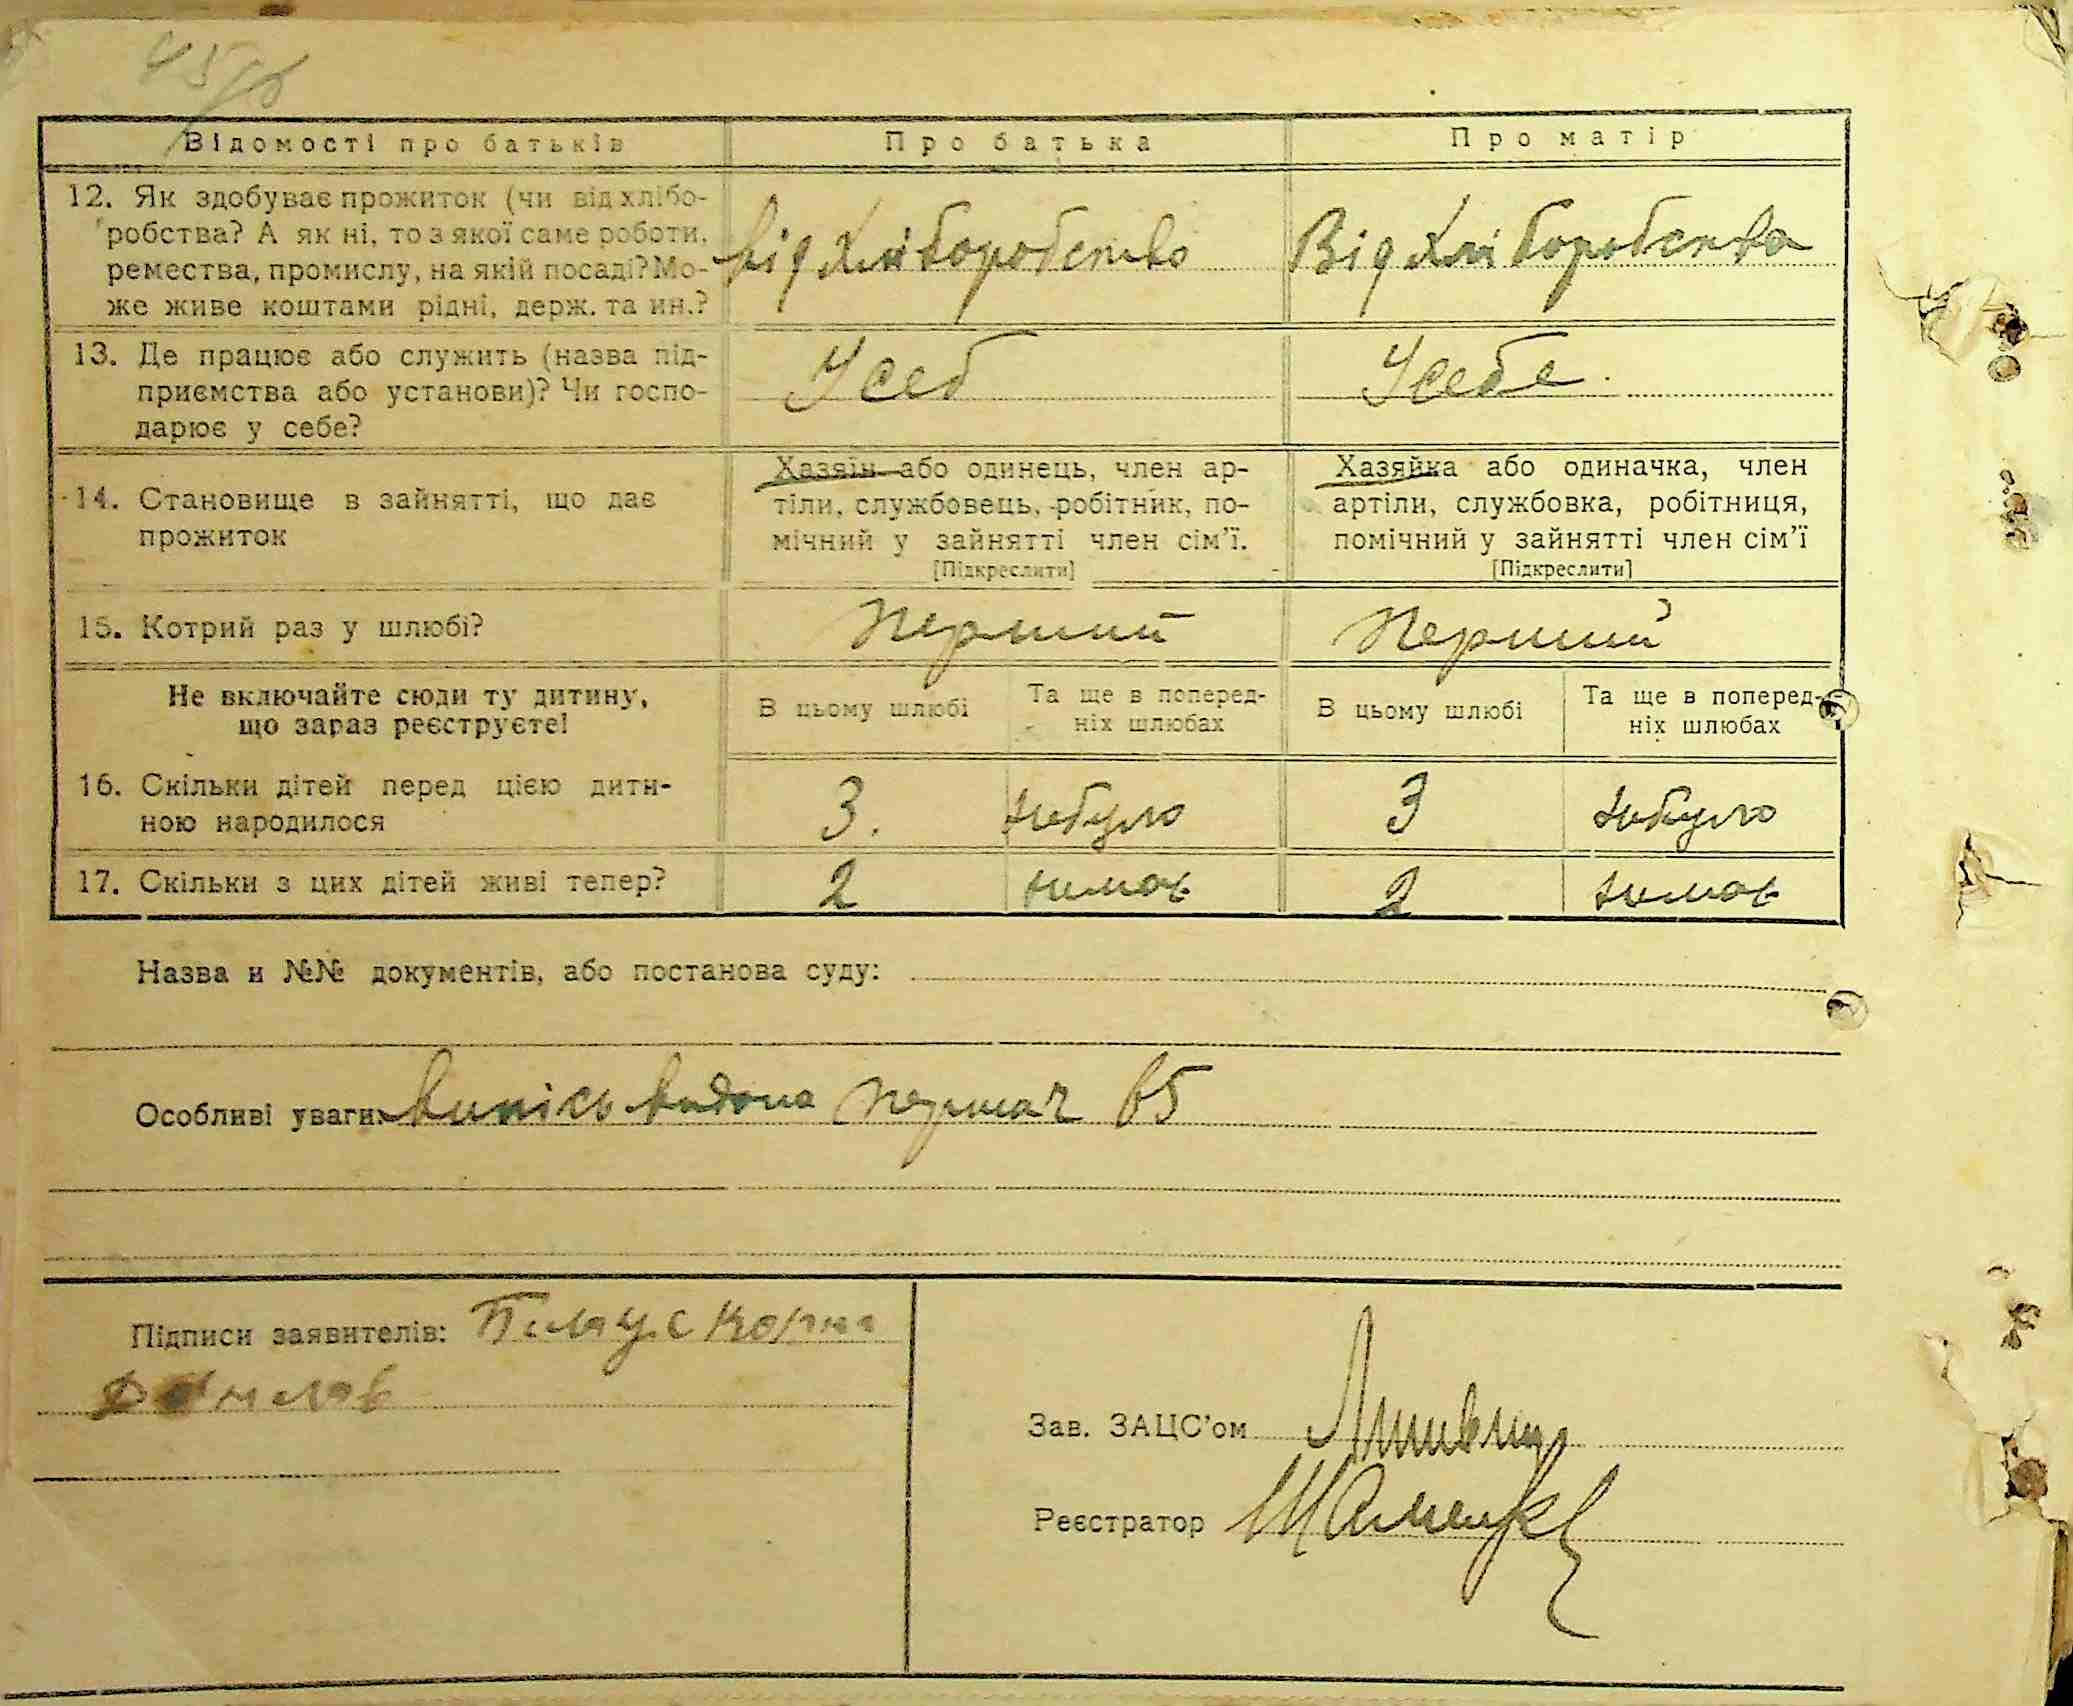 Відомості про батьків
Про батька
Про матір
12. Як здобуває прожиток (чи від хлібо-
робства? А як ні, то з якої саме роботи,
ремества, промислу, на якій посаді? Мо-
же живе коштами рідні, держ. та ин.?
від хліборобства
Від хліборобства
13. Де працює або служить (назва під-
приємства або установи)? Чи госпо-
дарює у себе?
У себ
У себе.
14. Становище в зайнятті, що дає
прожиток
Хазяїн або одинець, член ар-
тіли, службовець, робітник, по-
мічний у зайнятті член сім'ї.
[Підкреслити]
Хазяйка або одиначка, член
артіли, службовка, робітниця,
помічний у зайнятті член сім'ї
[Підкреслити]
15. Котрий раз у шлюбі?
Перший
Перший
Не включайте сюди ту дитину,
що зараз реєструєте!
В цьому шлюбі
Та ще в поперед-
ніх шлюбах
В цьому шлюбі
Та ще в поперед-
ніх шлюбах
16. Скільки дітей перед цією дити-
ною народилося
3.
небуло
3
небуло
17. Скільки з цих дітей живі тепер?
2
немає
2
немає
Назва и №№ документів, або постанова суду:
Особливі уваги: випісь видана
Підписи заявителів:
Зав. ЗАЦС'ом
Реєстратор